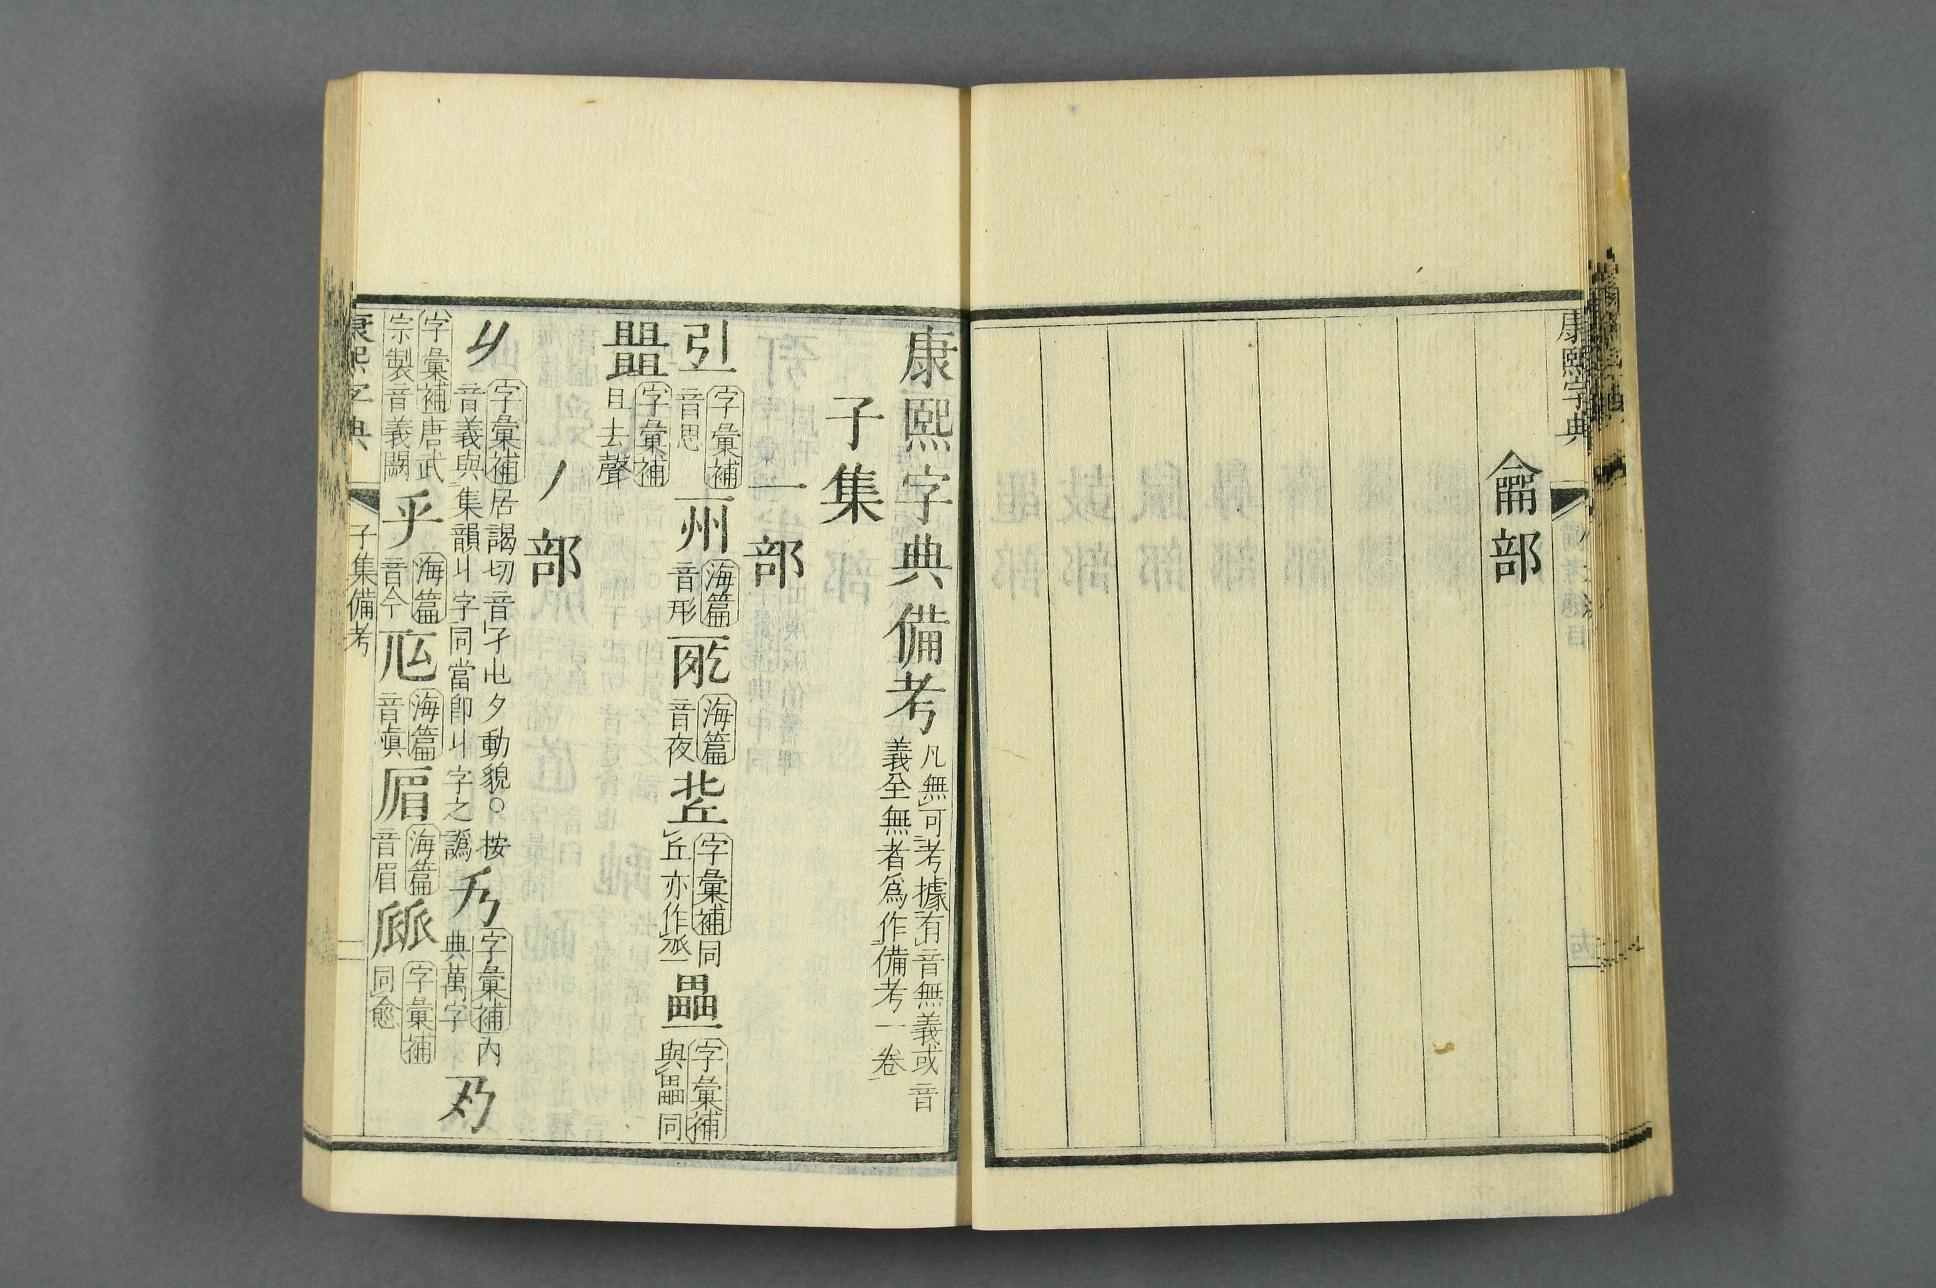 康熙字典
龠部
康熙字典備考 凡無可考據有音無義或音義全無者爲作備考一卷
子集
一部
字彙補音思 州 海篇音形 海篇音夜 字彙補同丘亦作 字彙補與畾同
字彙補旦去聲
丿部
字彙補居謁切音孑㞢夕動貌○按音義與集韻丩字同當卽丩字之譌 字彙補內典萬字
字彙補唐武宗製音義闕 海篇音仐 海篇音眞 海篇音眉 字彙補同愈
康熙字典 子集備考 一